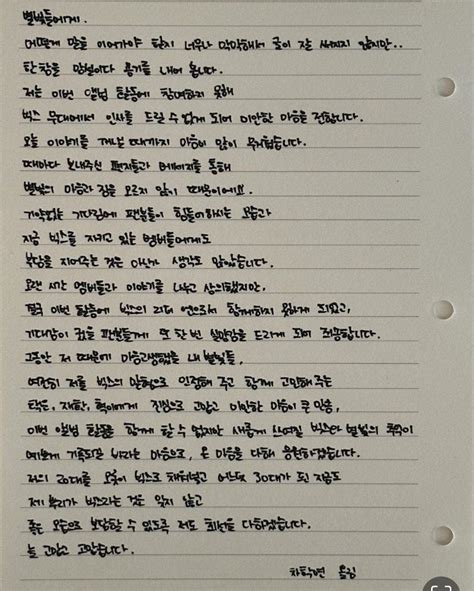 별빛들에게.
어떻게 말을 이어가야 할지 너무나 막막해서 글이 잘 써지지 않지만..
한참을 망설이다 용기를 내어 봅니다.
저는 이번 앨범 활동에 참여하지 못해
빅스 무대에서 인사를 드릴 수 없게 되어 미안한 마음을 전합니다.
오늘 이야기를 꺼내기까지 마음이 많이 무거웠습니다.
때마다 보내주신 편지들과 메세지를 통해
별빛의 마음과 짐을 모르지 않기 때문이에요.
기약없는 기다림에 팬분들이 힘들어하시는 모습과
지금 빅스를 지키고 있는 멤버들에게도
부담을 지어주는 것은 아닌가 생각도 많았습니다.
오랜 시간 멤버들과 이야기를 나누고 상의했지만,
결국 이번 활동에 빅스의 리더 엔으로서 함께하지 못하게 되었고,
기대감이 컸을 팬분들께 또 한 번 실망감을 드리게 되어 죄송합니다.
그동안 저 때문에 마음고생했을 내 별빛들,
여전히 저를 빅스의 맏형으로 인정해 주고 함께 고민해주는
택운, 재환, 혁이에게 진심으로 고맙고 미안한 마음이 큰 만큼,
이번 앨범 활동을 함께 할 수 없지만 새롭게 쓰여질 빅스와 별빛의 추억이
예쁘게 기록되길 바라는 마음으로, 온 마음을 다해 응원하겠습니다.
저의 20대를 오롯이 빅스로 채워넣고 어느덧 30대가 된 지금도
제 뿌리가 빅스라는 것은 잊지 않고
좋은 모습으로 보답할 수 있도록 저도 최선을 다하겠습니다.
늘 고맙고 고맙습니다.
차학연 올림